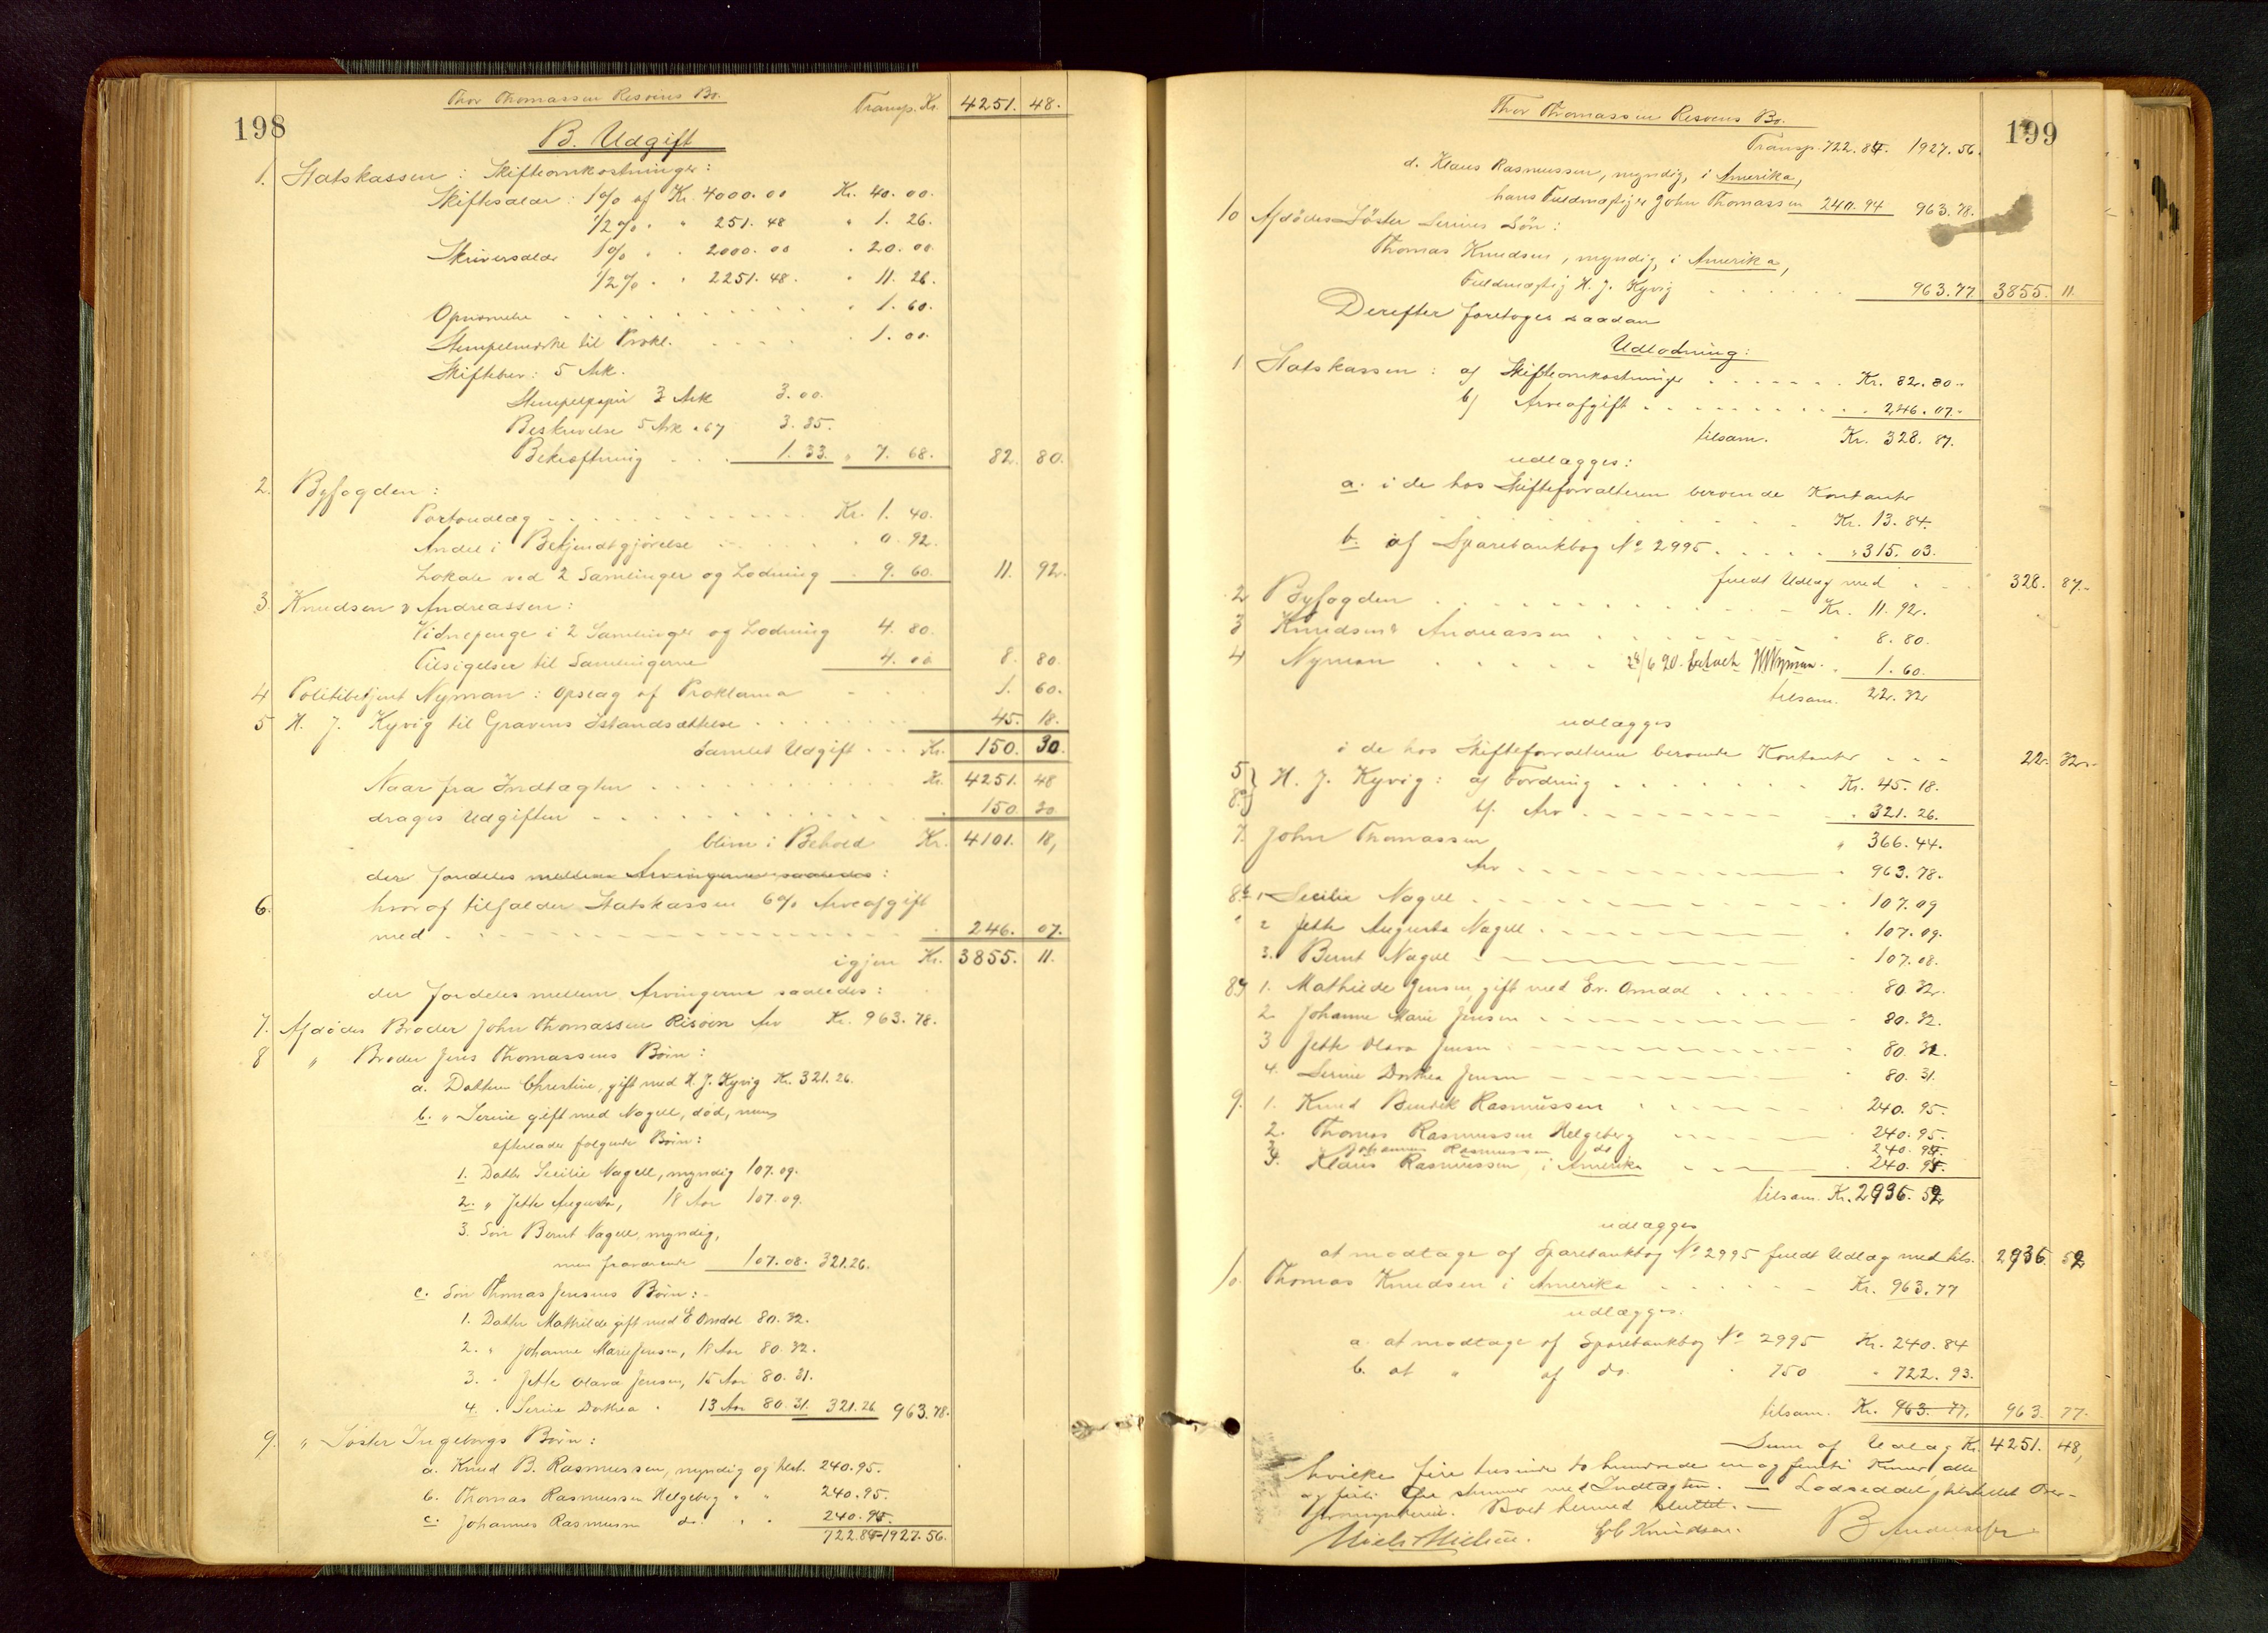 198
Thor Thomassen Risøens Bo.
Transp. Kr. 4251. 48.
B. Udgift
1. Statskassen: Skifteomkostninger:
Skiftesalær: 1% af Kr. 4000.00 Kr. 40.00.
1/2% " " 251.48 " 1. 26.
Skriversalær 1% " " 2000.00 " 20.00
1/2% " " 2251.48. " 11. 26.
Opnævnelse . . . " 1. 60.
Stempelmærke til Prokl. . . . " 1. 00.
Skiftebrev: 5 Ark.
Stempelpapir 3 Ark 3.00.
Beskrivelse 5 Ark a 67 3.35.
Bekræftning . . . 1. 33. " 7. 68. 82. 80.
2. Byfogden:
Portoudlæg . . . Kr. 1. 40.
Andel i Bekjendtgjørelse . . . " 0. 92.
Lokale ved 2 Samlinger og Lodning " 9. 60. 11. 92.
3. Knudsen & Andreassen:
Vidnepenge i 2 Samlinger og Lodning 4. 80.
Tilsigelser til Samlingerne 4. 00 8. 80.
4 Politibetjent Nyman: Opslag af Proklama . . . 1. 60.
5 H. J. Kyvig til Gravens Istandsættelse . . . 45. 18.
Samlet Udgift . . . Kr. 150. 30.
Naar fra Indtægten . . . Kr. 4251. 48
drages Udgiften . . . " 150. 30
bliver i Behold Kr. 4101. 18,
der fordeles mellem Arvingerne saaledes:
6. hvoraf tilfalder Statskassen 6% Arveafgift
med . . . 246. 07.
igjen Kr. 3855. 11.
der fordeles mellem Arvingerne saaledes:
7. Afdødes Broder John Thomassen Risøen Arv Kr. 963.78.
8 " Broder Jens Thomassens Børn:
a. Datteren Christine, gift med H. J. Kyvig Kr. 321.26.
b. " Serine gift med Nagell, død, men
efterlader følgende Børn:
1. Datter Secilie Nagell, myndig 107.09.
2. " Jette Augusta, 18 Aar 107.09.
3. Søn Bernt Nagell, myndig,
men fraværende 107.08. 321.26.
c. Søn Thomas Jensens Børn:
1. Datter Mathilde gift med E Omdal 80.32.
2. " Johanne Marie Jensen, 18 Aar 80.32.
3. " Jette Olava Jensen, 15 Aar 80.31.
4. " Serine Dorthea " 13 Aar 80.31. 321.26 963.78.
9. " Søster Ingeborgs Børn:
a. Knud B. Rasmussen, myndig og 240.95.
b. Thomas Rasmussen Helgeberg " " 240.95.
c. Johannes Rasmussen do. " " 240.94.
722.84 1927.56.
199
Thor Thomassen Risøens Bo.
Transp. 722.84. 1927.56.
d. Klaus Rasmussen, myndig, i Amerika,
hans Fuldmægtiger John Thomassen 240.94 963.78.
10 Afdødes Søster Serines Søn:
Thomas Knudsen, myndig, i Amerika,
Fuldmægtig H. J. Kyvig . . . 963.77 3855. 11.
Derefter foretoges saadan
Udlodning:
1 Statskassen: a) Skifteomkostninger . . . Kr. 82.80.
b) Arveafgift . . . " 246.07.
tilsam. Kr. 328.87.
udlægges:
a. i de hos Skifteforvalteren beroende Kontanter
Kr. 13.84.
b. af Sparebankbog No 2995 . . . " 315.03.
fuldt Udlæg med . . . 328. 87.
2 Byfogden . . . Kr. 11. 92.
3 Knudsen & Andreassen . . . " 8. 80.
4 Nyman . . . 28/6 20. Erholdt HNyman. " 1. 60.
tilsam. 22. 32
udlægges
i de hos Skifteforvalteren beroende Kontanter . . . 22. 32.
5
8a} H. J. Kyvig: a) Fordring . . . Kr. 45. 18.
b). Arv . . . " 321. 26.
" 366.44.
7. John Thomassen
Arv . . . " 963.78.
8b 1 Secilie Nagell . . . 107.09
" 2 Jette Augusta Nagell . . . 107.09.
3. Bernt Nagell . . . 107.08.
8c 1. Mathilde Jensen, gift med Er. Omdal . . . 80.32.
2 Johanne Marie Jensen . . . 80.32.
3 Jette Olava Jensen . . . 80.31.
4. Serine Dorthea Jensen . . . 80.31.
9. 1. Knud Bendik Rasmussen . . . 240.95.
2. Thomas Rasmussen Helgeberg . . . 240.95.
3. Johannes Rasmussen do 240.94.
4. Klaus Rasmussen, i Amerika . . . 240.94.
tilsam. Kr. 2936.52
udlægges
at modtage af Sparebankbog No 2995 fuldt Udlæg med tils. 2936. 52
10. Thomas Knudsen i Amerika . . . Kr. 963.77
udlægges:
a. at modtage af Sparebankbog No 2995 Kr. 240.84
b. at " af do. " 750 " 722.93.
tilsam. Kr. 963.77. 963. 77.
Sum af Udlæg Kr. 4251. 48,
hvilke fire tusinde to hundrede en og femti Kroner, otte
og førti Øre stemmer med Indtægten. — Lodseddel tilstillet Over-
formynderiet. Boet hermed sluttet. —
Niels Nielsen. Knudsen. B Andreassen